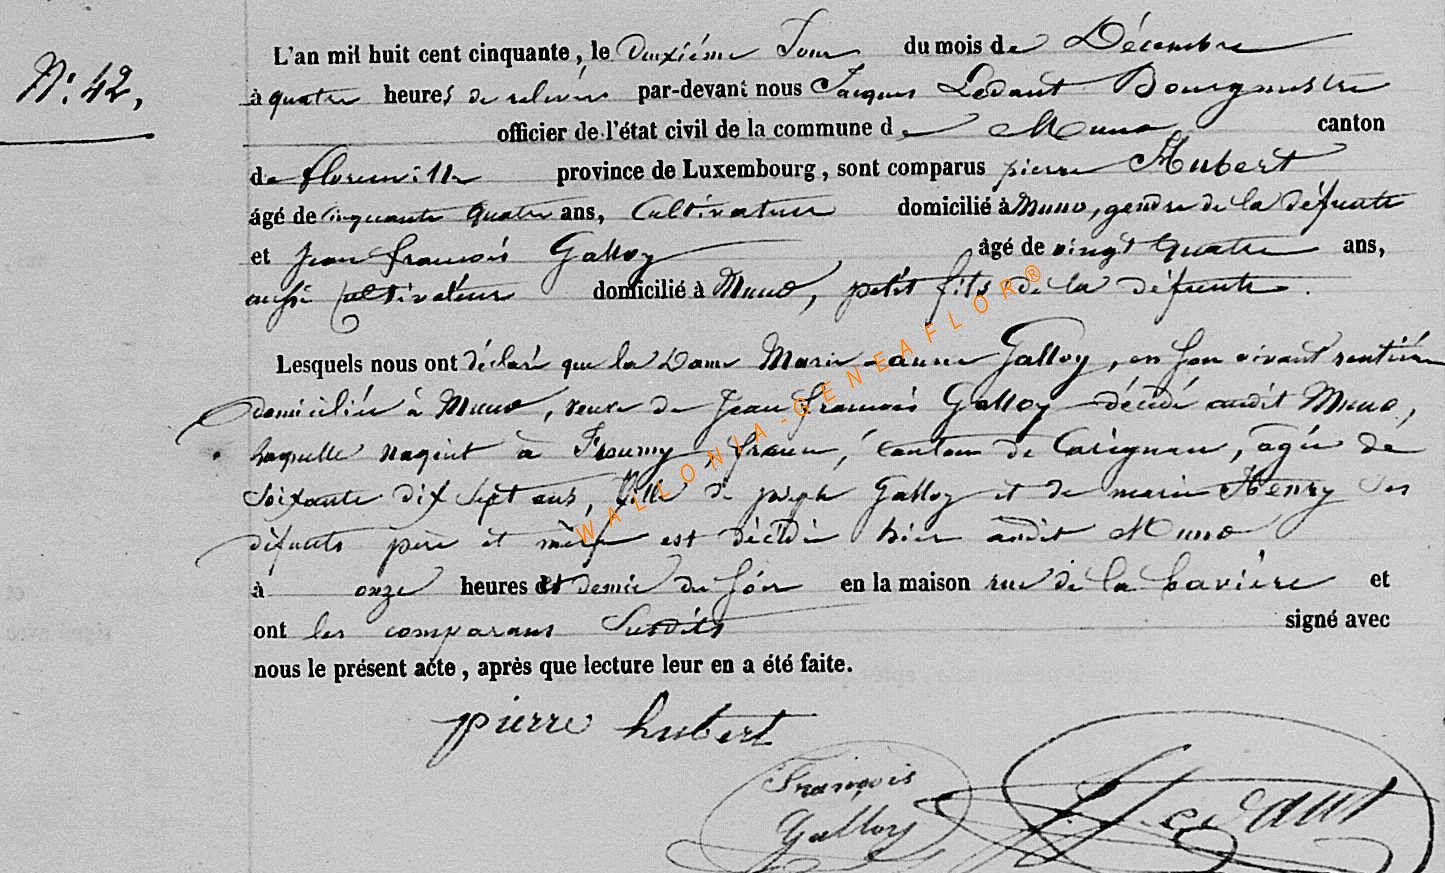 N.° 42,
L'an mil huit cent cinquante, le Deuxiéme Jour du mois de Décembre
à quatre heures de relevée par-devant nous Jacques Ledant Bourgmestre
officier de l'état civil de la commune de Muno canton
de florenville province de Luxembourg, sont comparus pierre Hubert
âgé de cinquante quatre ans, Cultivateur domicilié à Muno, gendre de la défunte
et Jean françois Galloy âgé de vingt quatre ans,
aussi cultivateur domicilié à Muno, petit fils de la défunte.
Lesquels nous ont déclaré que la Dame Marie anne Galloy, en son vivant rentière
domiciliée à Muno, veuve de Jean françois Galloy décédé audit Muno,
laquelle naquit à france, canton de Carignan, agée de
soixante dix sept ans, fille de joseph Galloy et de marie Henry ses
défunts père et mère est décédée hier audit Muno
à onze heures et demie du soir en la maison rue de la et
ont les comparans Susdits signé avec
nous le présent acte, après que lecture leur en a été faite.
pierre hubert
François
Galloy
J Ledant
WALLONIA-GENEAFLOR®